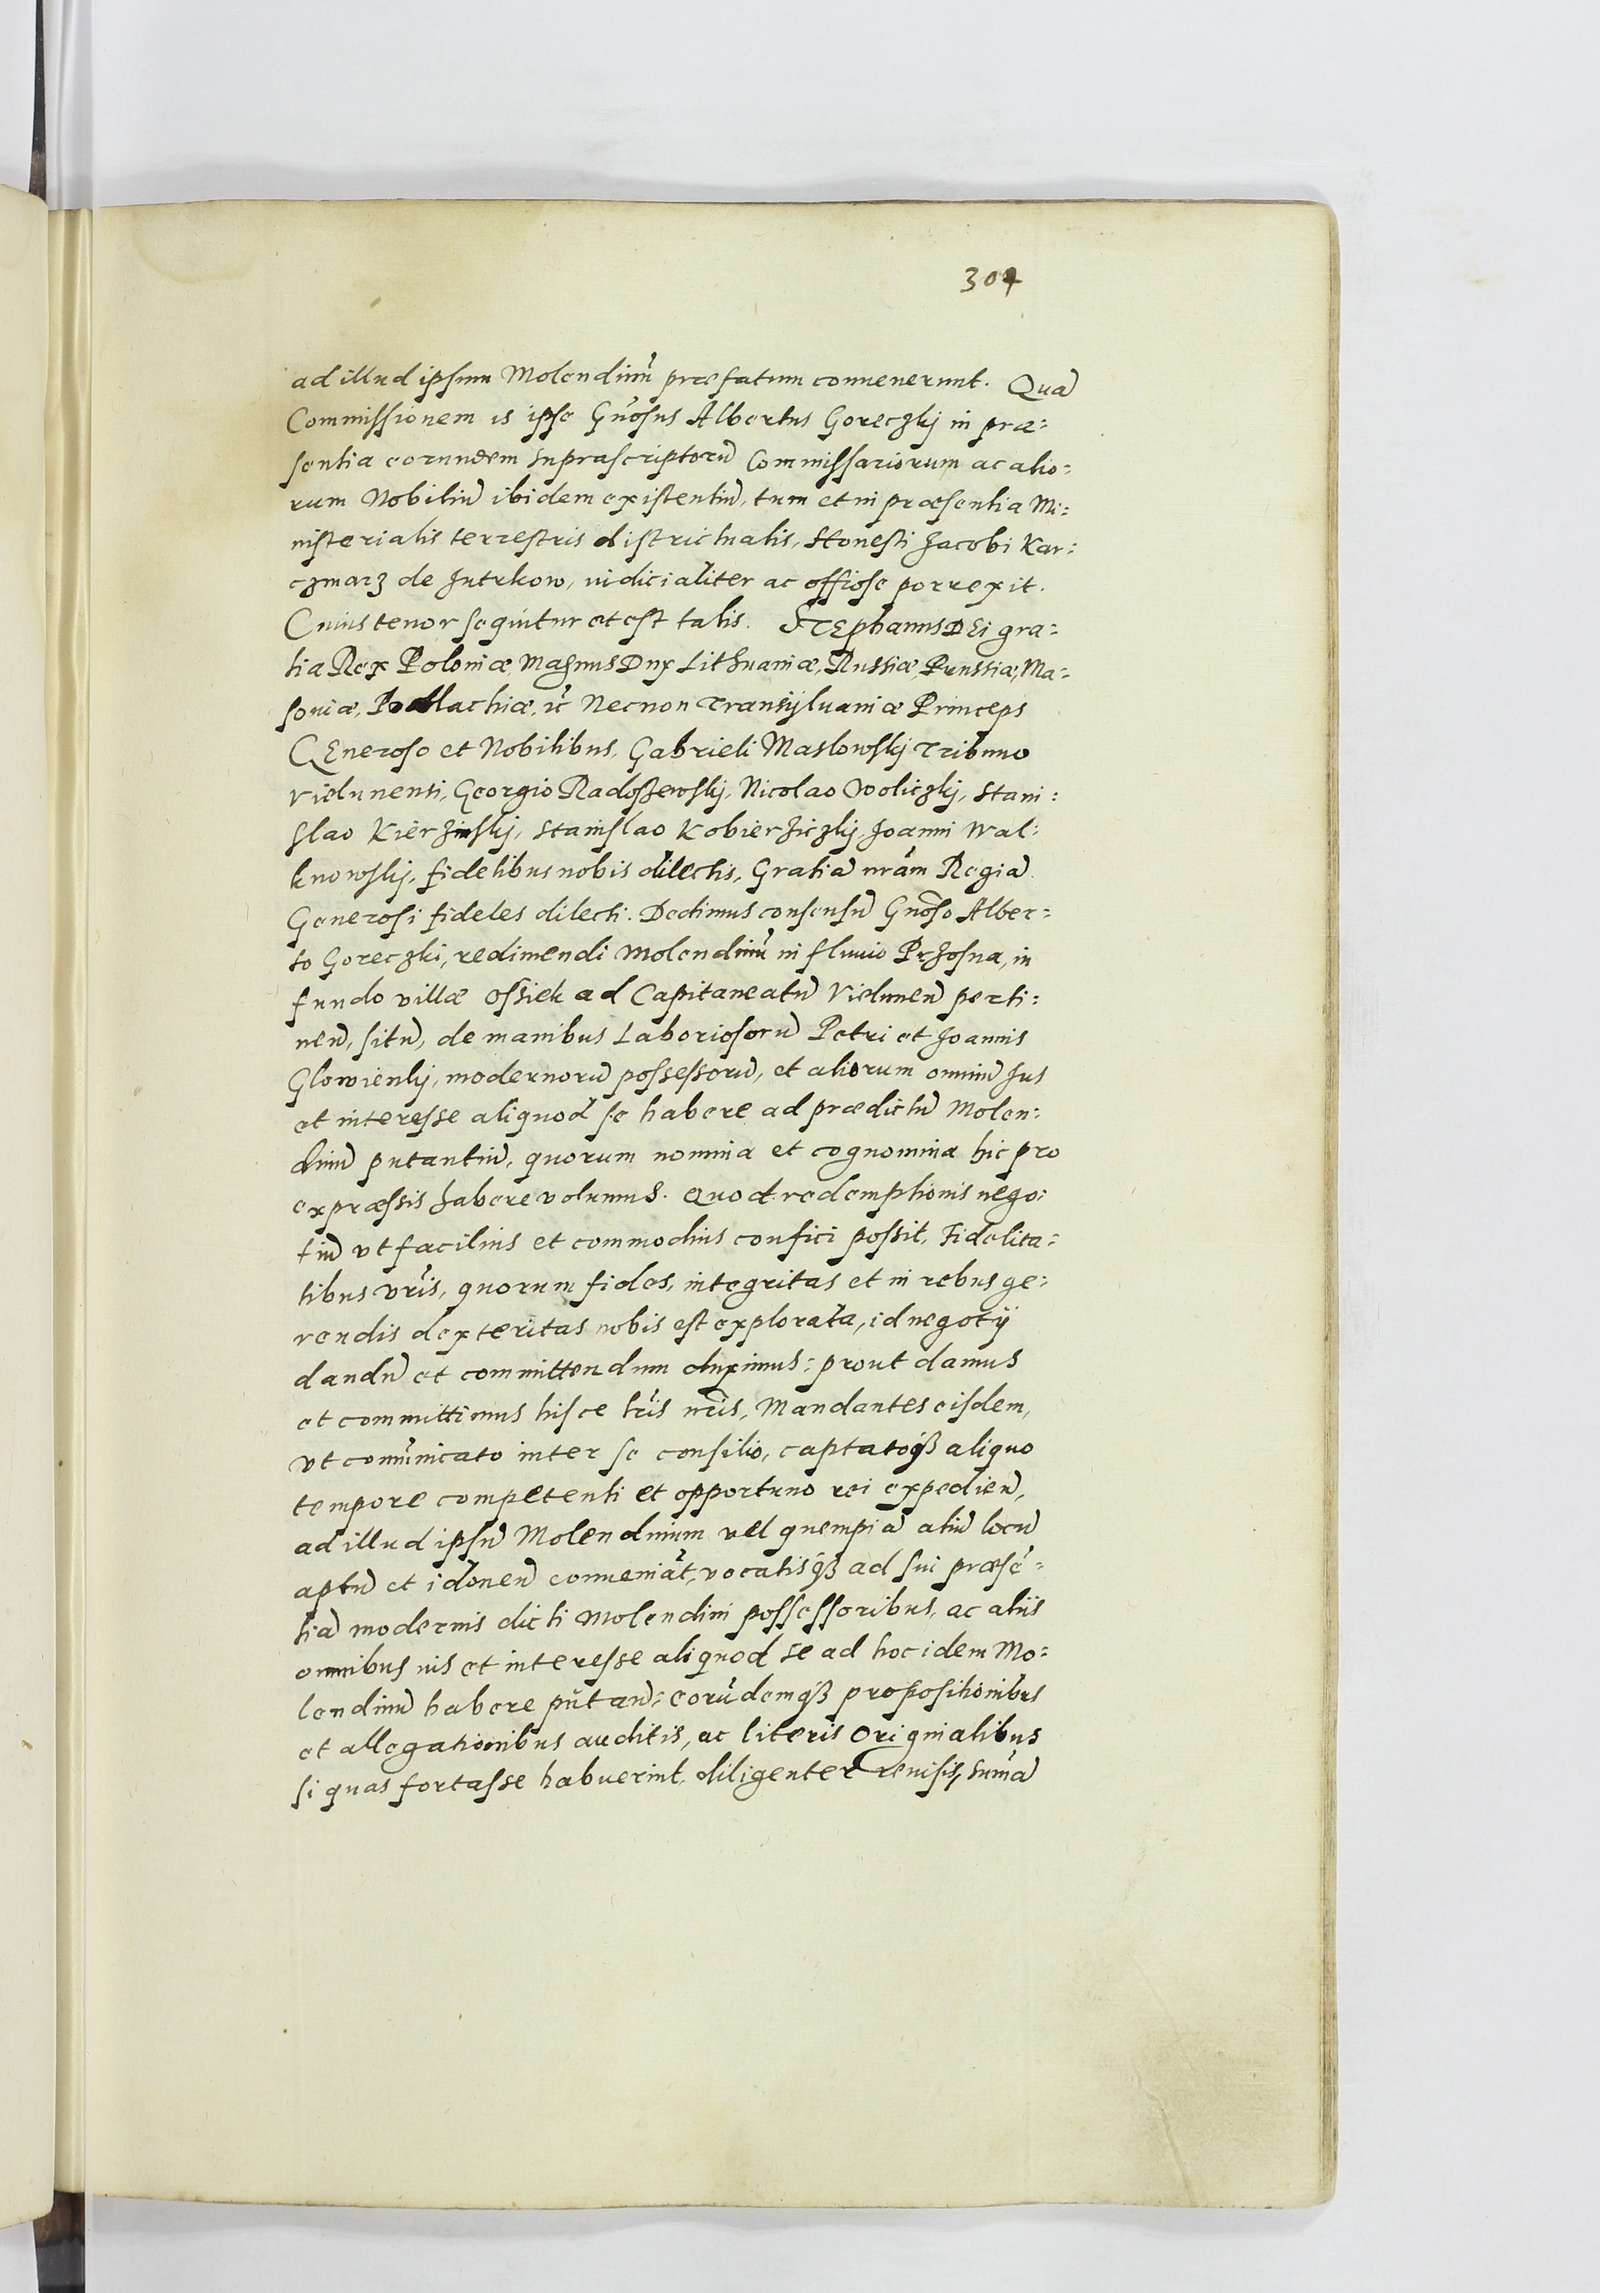 304
ad illud ipsum Molendinū præfatum conuenerunt. Quā
Commissionem is ipse Gn̄osus Albertus Goreczkj in præ:
sentia eorundem suprascriptorū Commissariorum ac alio:
rum Nobiliū ibidem existentiū, tum et in præsentia Mi:
nisterialis terrestris districtualis, Honesti Jacobi Kar:
czmarz de Jutrkow, iudicialiter ac offiose porrexit.
Cuius tenor sequitur et est talis. STEphanus DEi gra:
tia Rex Poloniæ, Magnus Dux Lithuaniæ, Russiæ, Prussiæ, Ma:
souiæ, Podlachiæ, ꝛc̄ Necnon Transÿluaniæ Princeps
GEneroso et Nobilibus, Gabrieli Maslowskj Tribuno
Vielunensi, Georgio Radoszewskj, Nicolao Woliczkj, Stani:
slao Kierzinskj, Stanislao Kobierziczkj, Joanni Wal:
knowskj, fidelibus nobis dilectis, Gratiā nr̄am Regiā.
Generosi fideles dilecti. Dedimus consensū Gn̄oso Alber:
to Goreczki, redimendi Molendinū in fluuio Przosna, in
fundo villæ Ossiek ad Capitaneatū Vielunen̄ perti:
nen̄, sitū, de manibus Laboriosorū Petri et Joannis
Glowienkj, modernorū possessorū, et aliorum omniū Jus
et interesse aliquod se habere ad prædictū Molen:
dinū putantiū, quorum nomina et cognomina hic pro
expræssis habere volumus. Quod redemptionis nego:
tiū vt facilius et commodius confici possit, Fidelita:
tibus vr̄is, quorum fides, integritas et in rebus ge:
rendis dexteritas nobis est explorata, id negotÿ
dandū et committendum duximus: prout damus
et committimus hisce lr̄is nr̄is, Mandantes eisdem,
vt com̄unicato inter se consilio, captatoqꝫ aliquo
tempore competenti et opportuno rei expedien̄,
ad illud ipsū Molendinum vel quempiā aliū locū
aptū et idoneū conueniāt, vocatisqꝫ ad sui præsē:
tiā modernis dicti Molendini possessoribus, ac aliis
omnibus ius et interesse aliquod se ad hoc idem Mo:
lendinū habere putan̄: eorūdemqꝫ propositionibus
et allegationibus auditis, ac literis Originalibus
si quas fortasse habuerint, diligenter reuisis, Sum̄ā